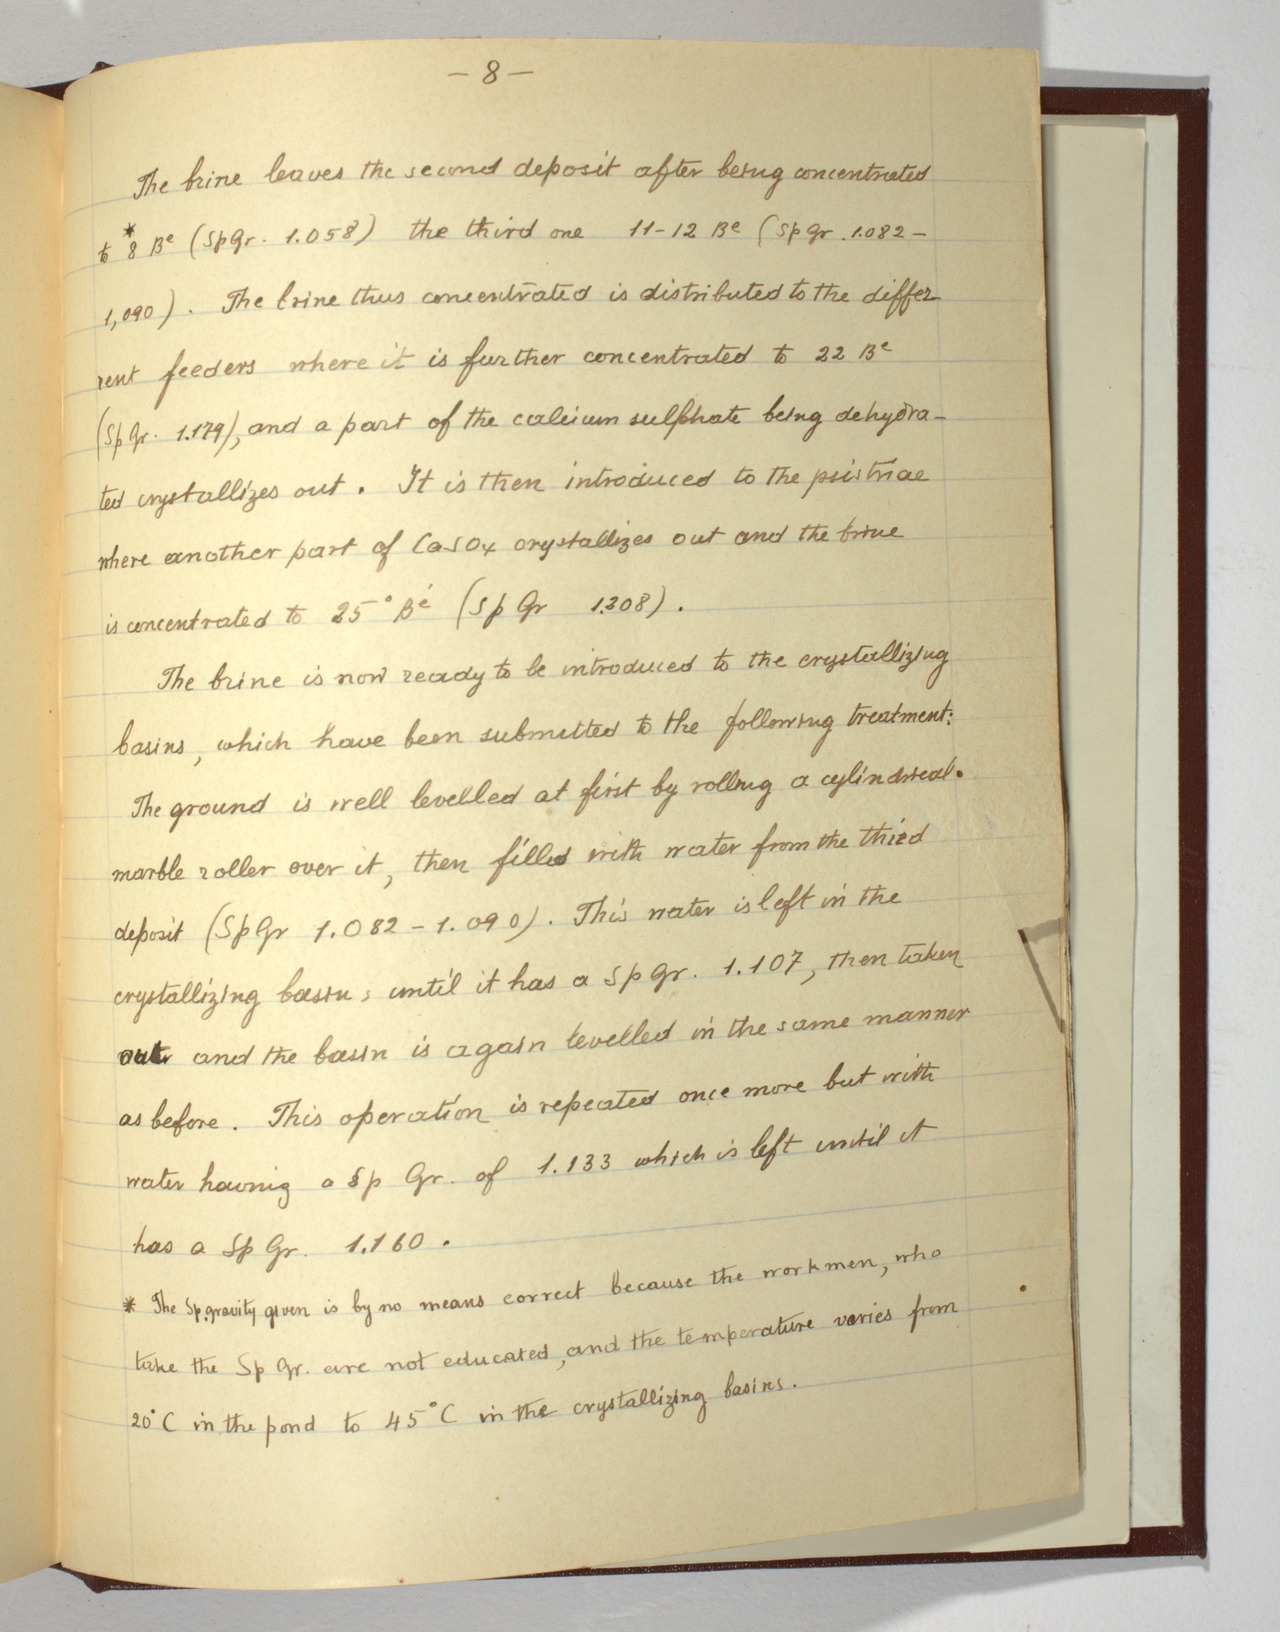 – 8 –
The brine leaves the second deposit after being concentrated
to *8 Be (Sp Gr. 1.058) the third one 11-12 Be (Sp Gr. 1.082-
1,090). The brine thus concentrated is distributed to the differ-
rent feeders where it is further concentrated to 22 Be
(Sp Gr. 1.179), and a part of the calcium sulphate being dehydra-
ted crystallizes out. It is then introduced to the psistriae
where another part of CaSO4 crystallizes out and the brine
is concentrated to 25° Bé (Sp Gr 1.208).
The brine is now ready to be introduced to the crystallizing
basins, which have been submitted to the following treatment:
The ground is well levelled at first by rolling a cylindrical.
marble roller over it, then filled with water from the third
deposit (Sp Gr 1.082-1.090). This water is left in the
crystallizing basin, until it has a Sp Gr. 1.107, then taken
out and the basin is again levelled in the same manner
as before. This operation is repeated once more but with
water having a Sp Gr. of 1.133 which is left until it
has a Sp Gr. 1.160.
* The Sp.gravity given is by no means correct because the workmen, who
take the Sp Gr. are not educated, and the temperature varies from
20°C in the pond to 45°C in the crystallizing basins.